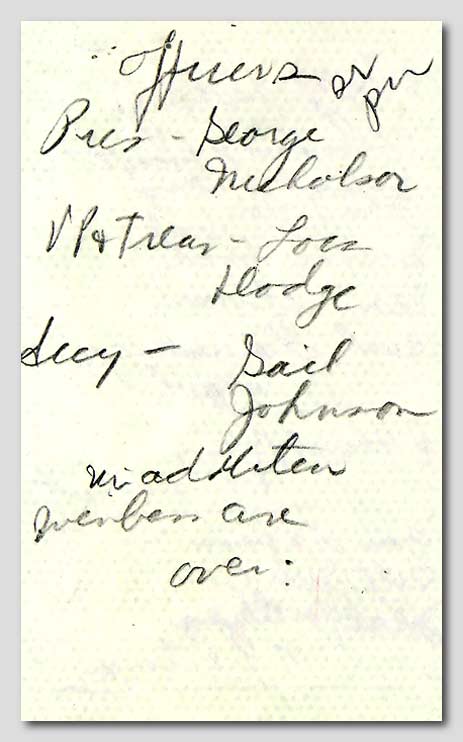 Officers
Pres - George
Nicholson
VP & Treas - Lois
Hodge
Secy - Gail
Johnson
in addition
members are
over: